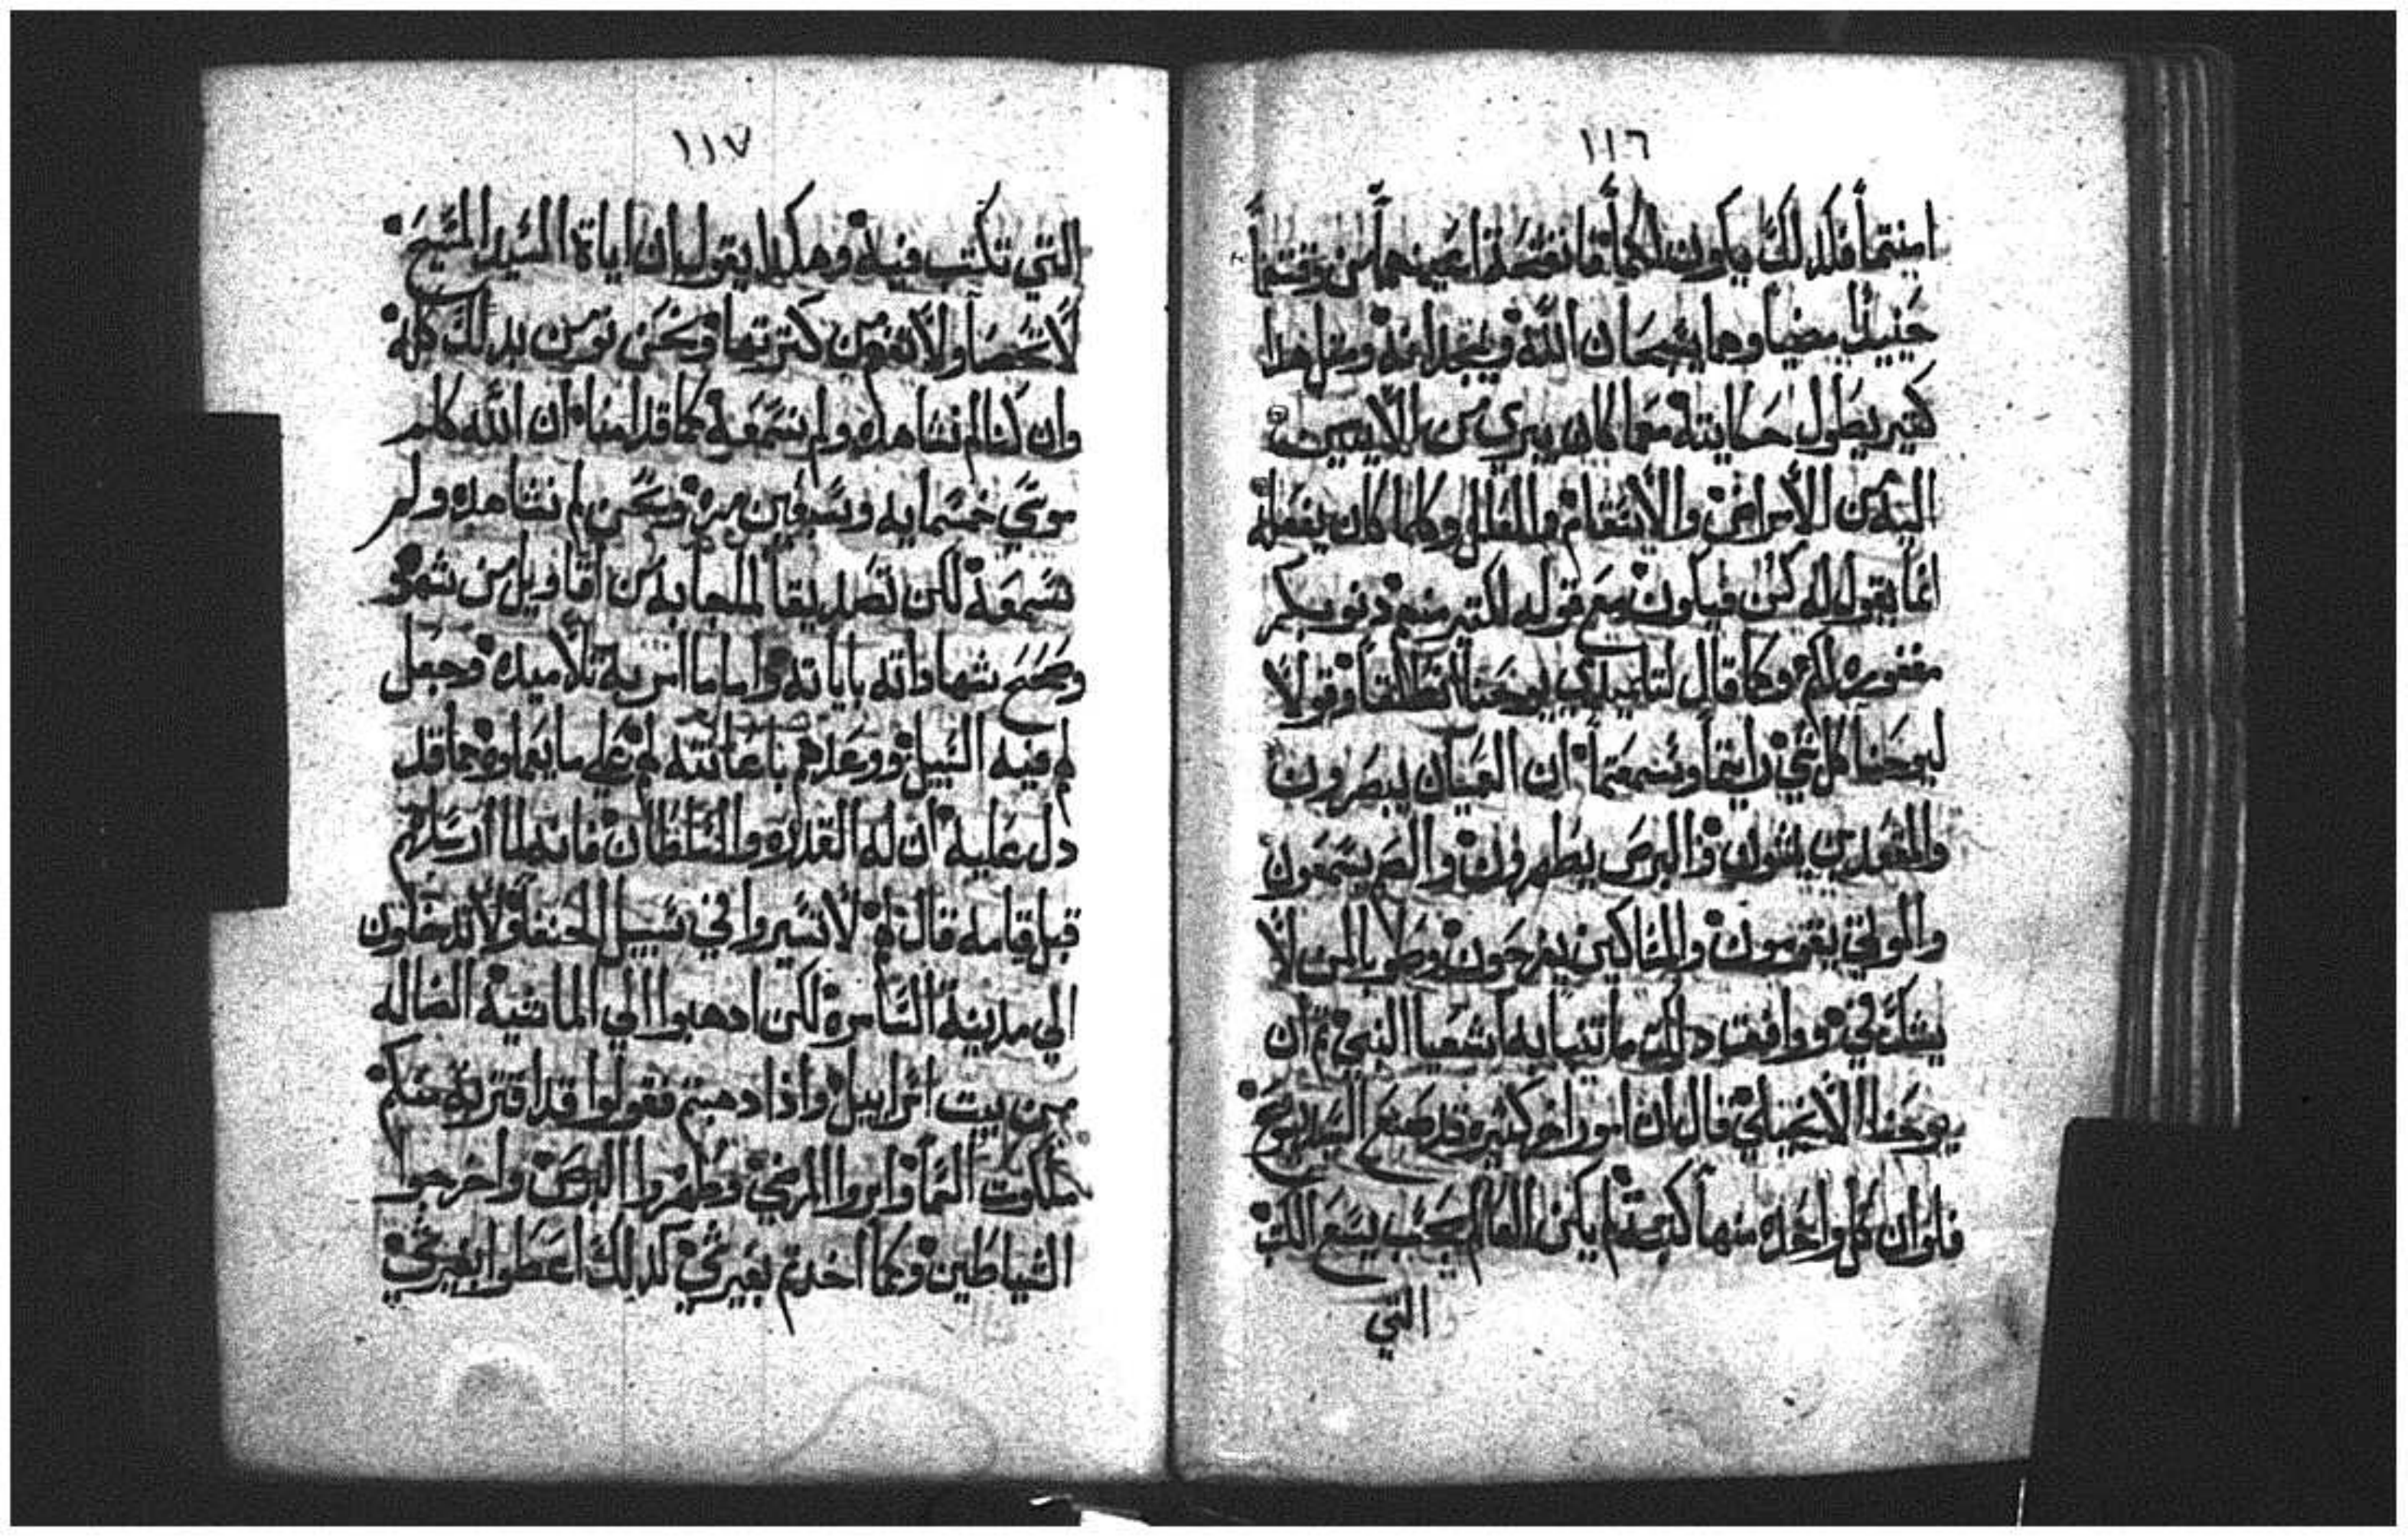 ١١٦
امنتما فكدلك يكون لكما فانفتحة اعينهما من وقتهما
حينيدا ومضيا وهما يسبحان الله ويمجدانه ومثل هدا
كتير يطول حكايته مما كان يبري من
اليه من الامراض والاسقام والعلل وكلما كان يفعله
انما يقول له كن فيكون مع قوله لكتير منهم دنوبكم
مغفوره لكم وكما قال لتلميدي يوحنا انطلقا وقولا
ليوحنا كل شي رايتما وسمعتما ان العميان يبصرون
والمقعدين يمشون والبرص يطهرون والصم يسمعون
والموتي يقومون والمساكين يفرحون وطوبا لمن لا
يشك في ووافق دلك ما تنبا به اشعيا النبي تم ان
يوحنا الانجيلي قال ان امورا اخر كتيره قد صنع السيد يسوع
فلو ان كل واحده منها كتبت لم يكن العالم يسع الكتب
التي
١١٧
التي تكتب فيه وهكدا يقول ان اياة السيد المسيح
لا تحصا ولا توصف من كترتها ونحن نومن بدلك كله
وان كنا لم نشاهده ولم نسمعه كما قد امنا ان الله كلم
موسي خمسمايه وسبعين مره ونحن لم نشاهده ولم
نسمعه لكن تصديقا لما جا به من اقاويل من شهد
وصحح شهاداته باياته واما ما امر به تلاميده وجعل
لهم فيه السبيل ووعدهم باعانته لهم علي ما يعملو مما قد
دل عليه ان له القدره والسلطان فانه لما ارسلهم
قبل قيامه قال لهم لا تسيروا في سبيل الحنفا ولا تدخلون
الي مدينة السامره لكن ادهبوا الي الماشية الضاله
من بيت اسراييل وادا دهبتم فقولوا قد اقتربة منكم
ملكوت السما وابروا المرضي وطهروا البرص واخرجوا
الشياطين وكما اخدتم بغير شي كدلك اعطوا بغير شي